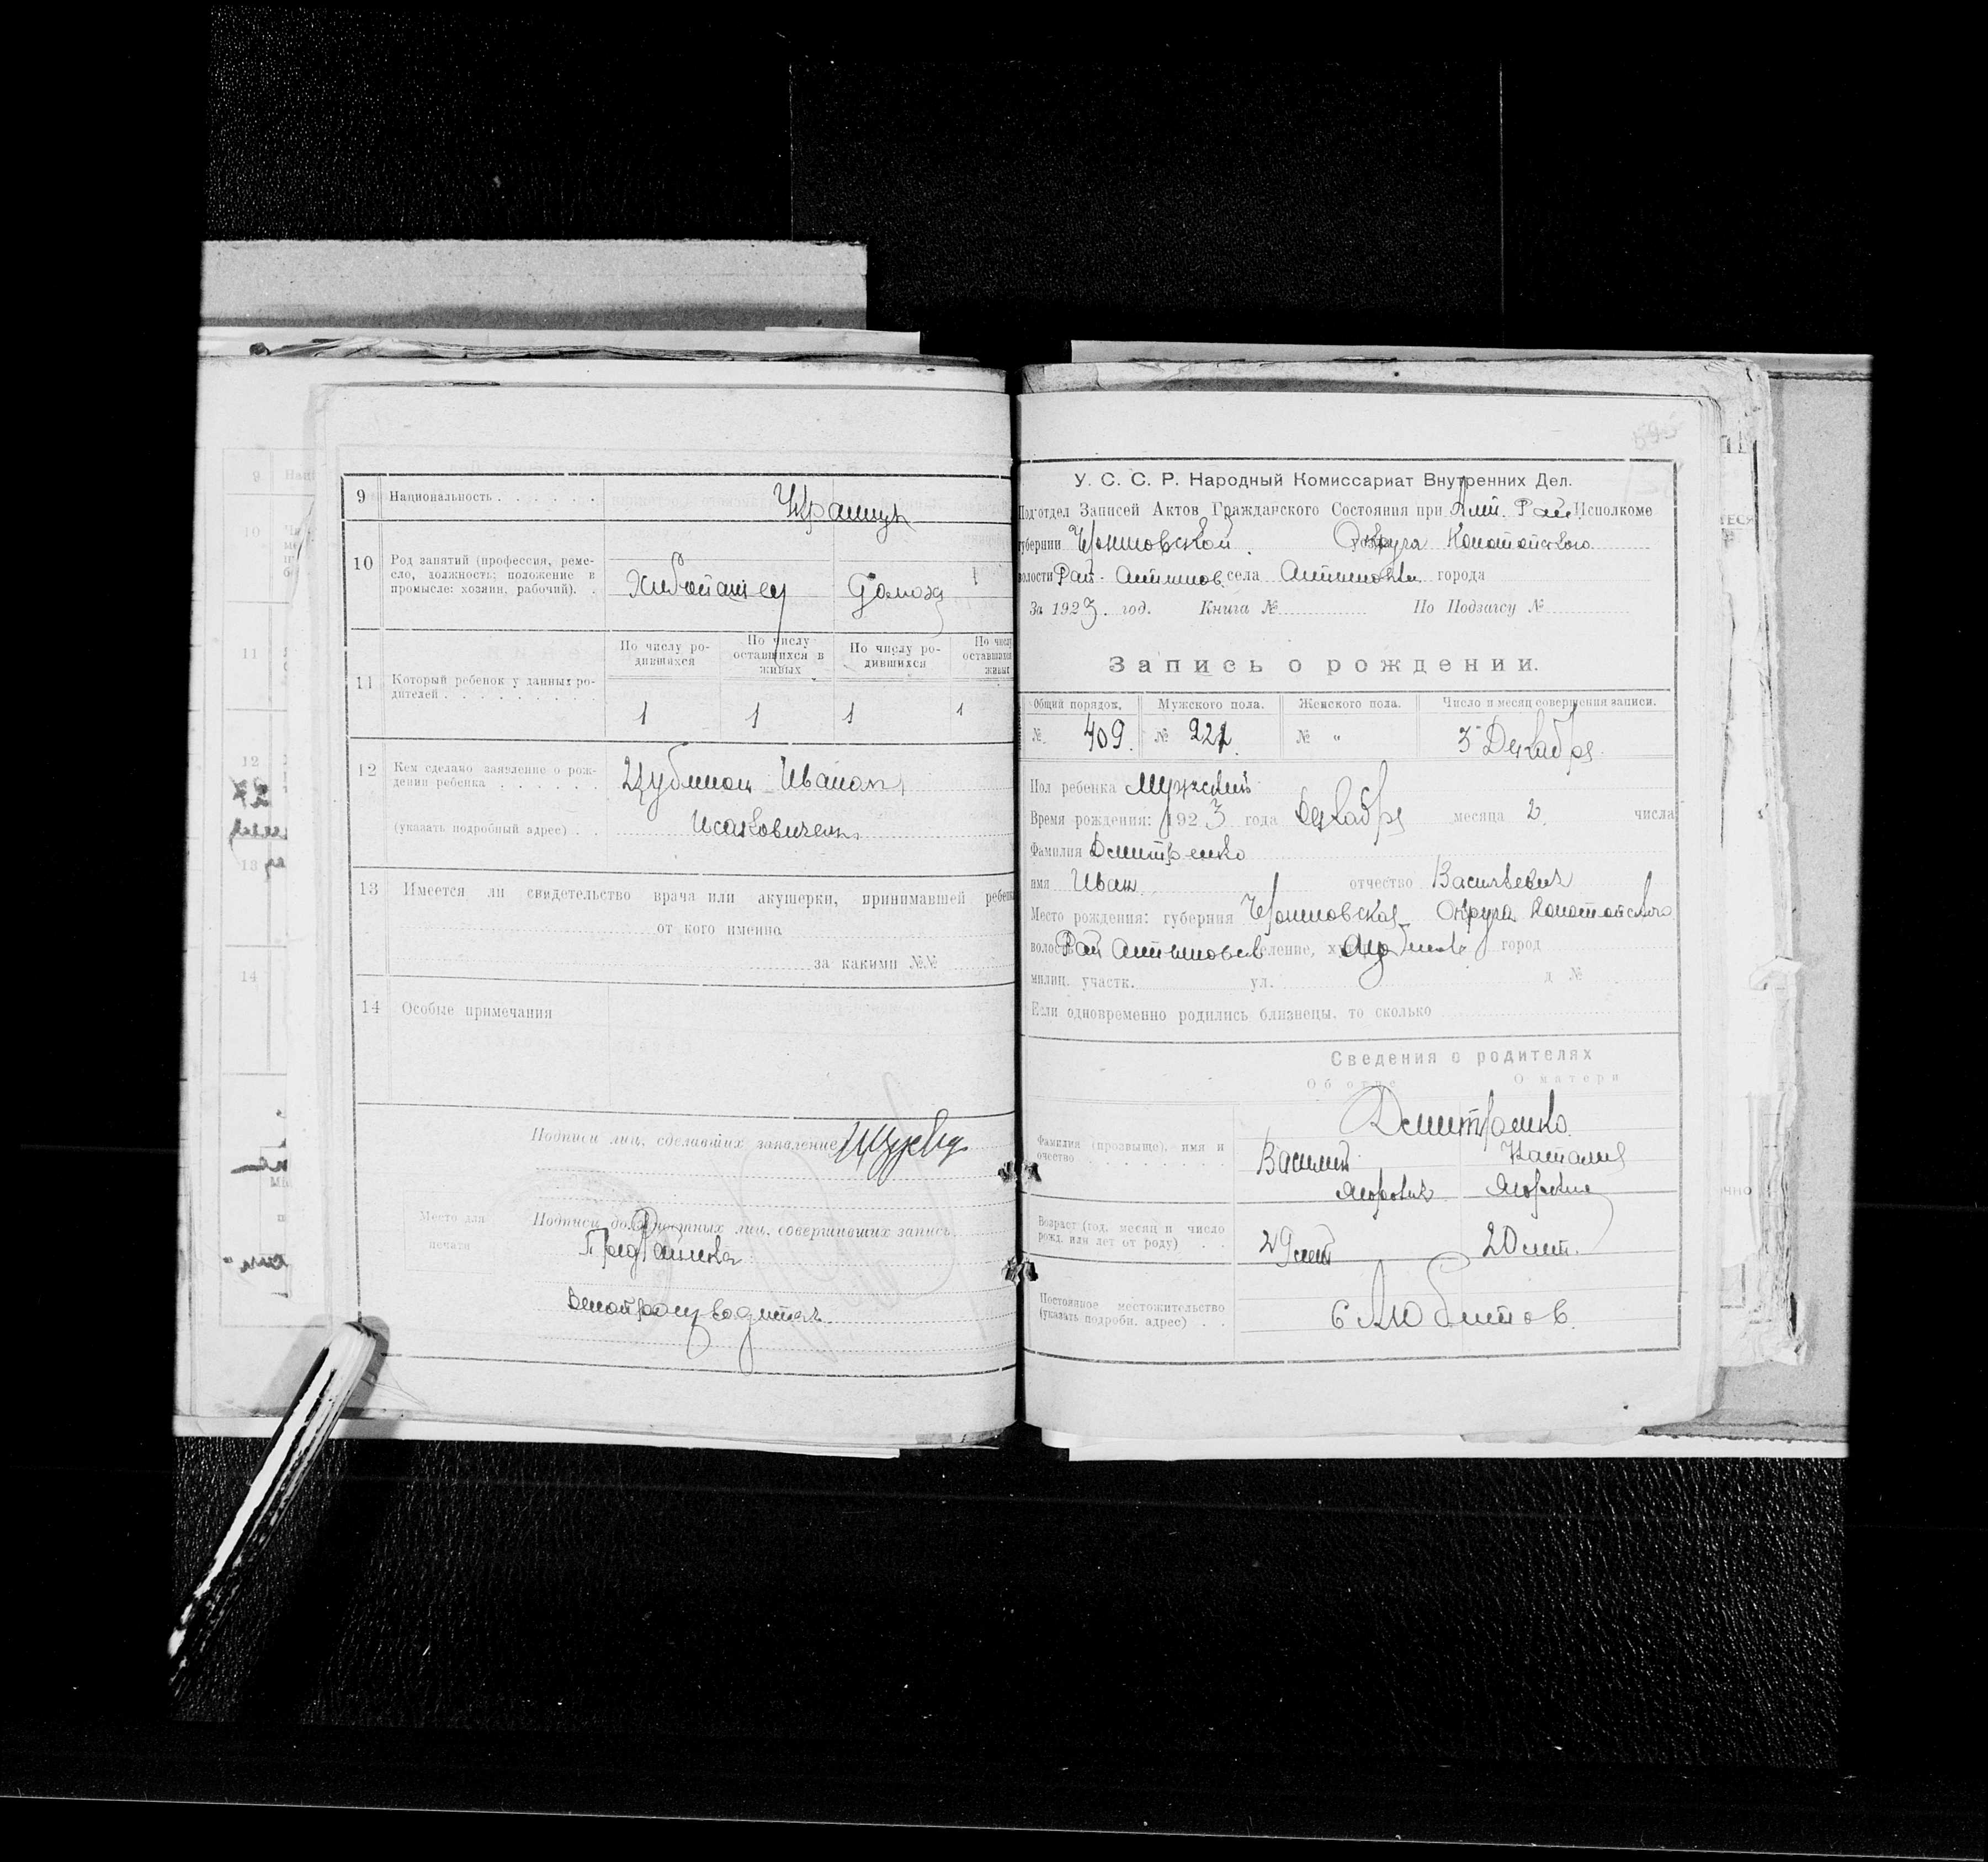 9 Национальность . . . . . .
Украинцы
10 Род занятий (профессия, реме-
сло, должность; положение в
промысле: хозяин, рабочий). .
Хлебопашец
11 Который ребенок у данных ро-
дителей . . . . . . . .
По числу ро-
дившихся
По числу
оставшихся в
живых
По числу ро-
дившихся
По числу
оставшихся
живых
1 1 1 1
12 Кем сделано заявление о рож-
дении ребенка . . . . . .
Иваном
(указать подробный адрес) . .
Исаковичем
13 Имеется ли свидетельство врача или акушерки, принимавшей ребенка
от кого именно
за какими №№
14 Особые примечания
Подписи лиц, сделавших заявление
Место для
печати
Подписи должностных лиц, совершивших запись
Делопроизводитель
У. С. С. Р. Народный Комиссариат Внутренних Дел.
Под'отдел Записей Актов Гражданского Состояния при Рай Исполкоме
губернии Черниговской Округа Конотопского
волости Рай. села города
За 1923 год. Книга № По Подзагсу №
Запись о рождении.
Общий порядок, Мужского пола. Женского пола. Число и месяц совершения записи.
№ 409. № 221. № " 3 Декабря
Пол ребенка Мужский
Время рождения: 1923 года Декабря месяца 2 числа
Фамилия Дмитренко
имя Иван отчество Васильевич
Место рождения: губерния Черниговская Округа Конотопского
волость Рай селение, хутор город
милиц. участк. ул. д №
Если одновременно родились близнецы, то сколько
Сведения о родителях
Об отце О матери
Дмитренко
Фамилия (прозвище), имя и
отчество . . . . . . . .
Василий Наталия
Возраст (год, месяц и число
рожд. или лет от роду) . .
29 лет 20 лет.
Постоянное местожительство
(указать подробн. адрес) . .
с Любитов.